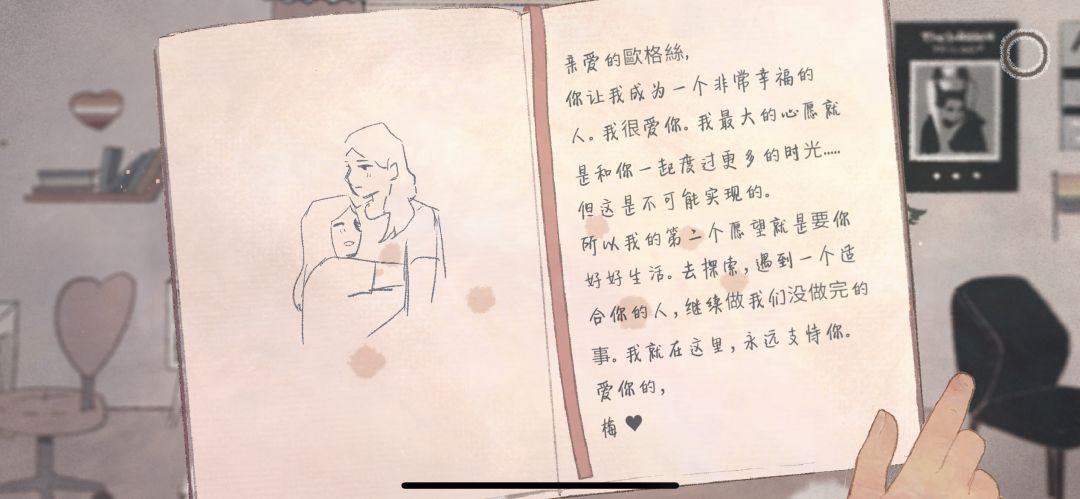 亲爱的歐格絲,
你让我成为一个非常幸福的
人。我很爱你。我最大的心愿就
是和你一起度过更多的时光……
但这是不可能实现的。
所以我的第二个愿望就是要你
好好生活。去探索，遇到一个适
合你的人，继续做我们没做完的
事。我就在这里，永远支恃你。
爱你的，
梅 ♥